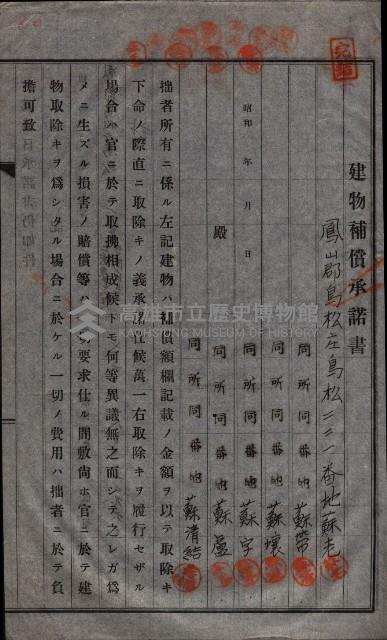 建物補償承諾書
鳳山郡鳥松庄鳥松二二一番地蘇老
同所同番地 蘇常
同所同番地 蘇壞
同所同番地 蘇字
同所同番地 蘇盧
同所同番地 蘇清結
昭和 年 月 日
殿
拙者所有ニ係ル左記建物ハ補償額欄記載ノ金額ヲ以テ取除キ
下命ノ際直ニ取除キノ義承諾仕候萬一右取除キヲ履行セザル
場合ハ官ニ於テ取拂相成候トモ何等異議無之而シテ之レガ爲
メニ生ズル損害ノ賠償等ハ一切要求仕ル間敷尚ホ官ニ於テ建
物取除キヲ爲シタル場合ニ於ケル一切ノ費用ハ拙者ニ於テ負
擔可致
高雄市立歷史博物館
KAOHSIUNG MUSEUM OF HISTORY